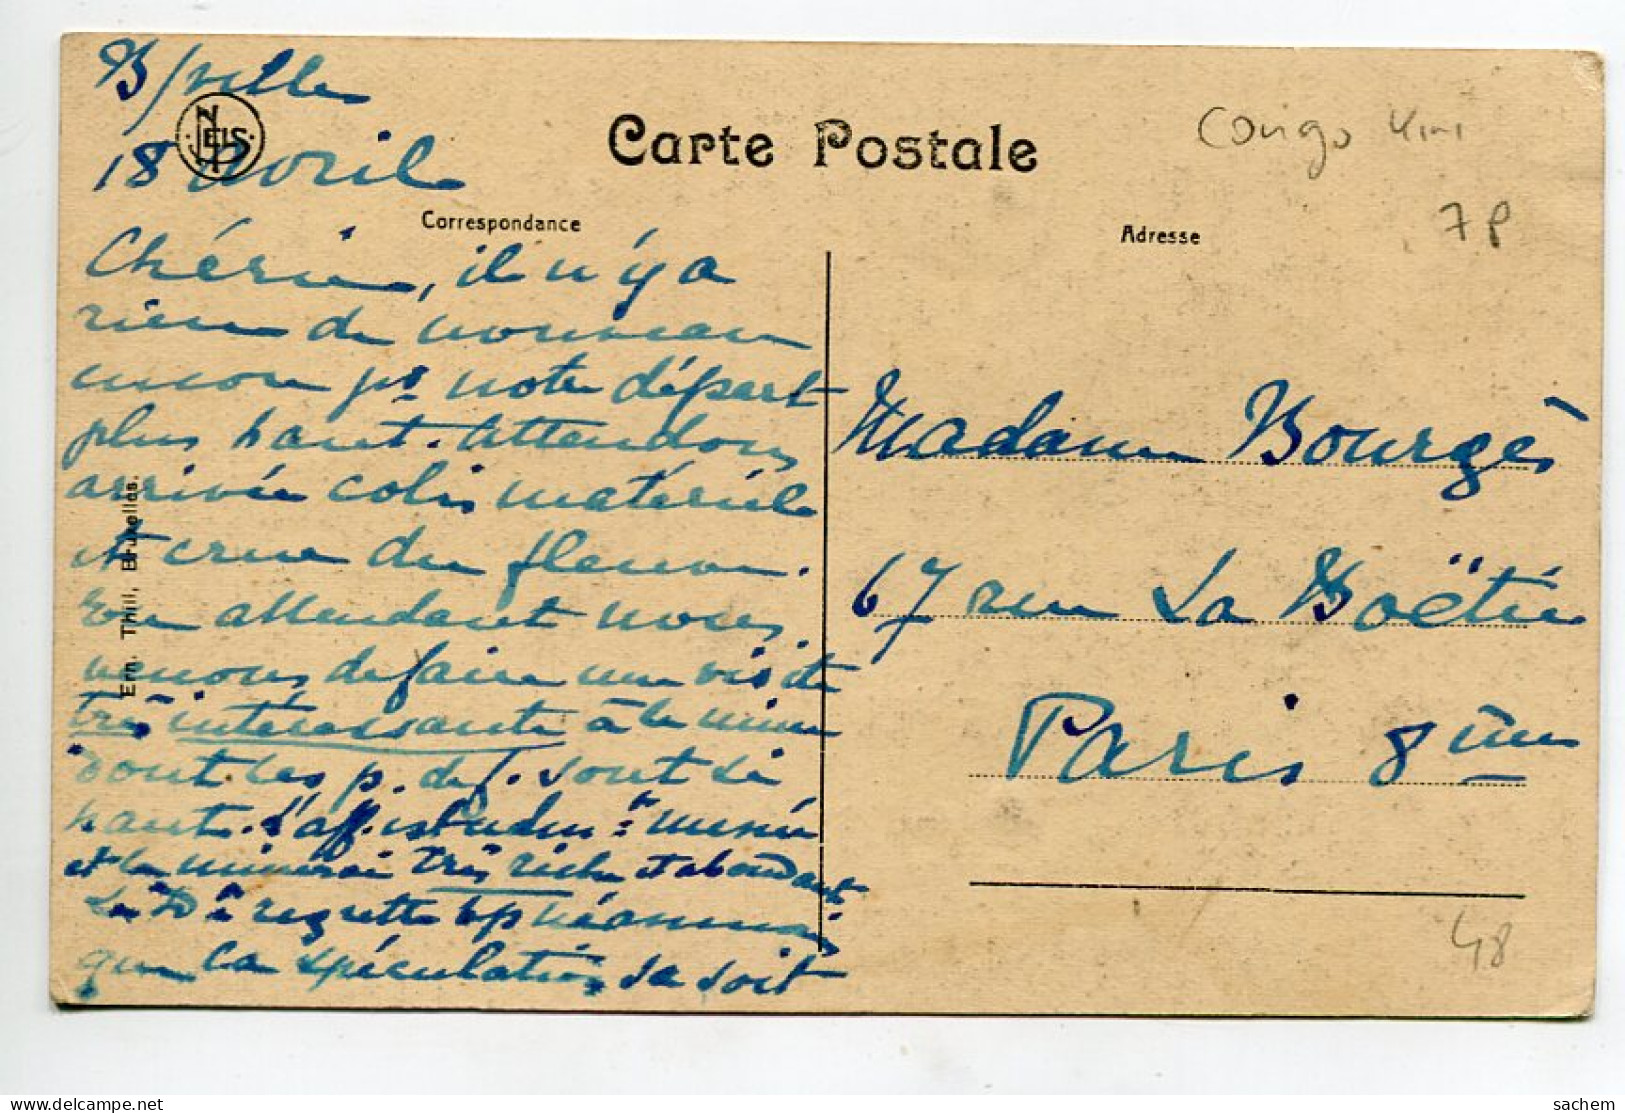 B/ville
18 Avril
NELS
Carte Postale
Congo
7P
Correspondance
Adresse
Chérie, il n'y a
rien de nouveau
encore pr notre départ
plus haut. Attendons
arrivée colis matériel
et crue du fleuve.
En attendant nous
venons de faire une visite
très intéressante à la mine
dont les p. de f. sont si
haut. L'aff. est
et le minerai très riche et abondant
regrette bp néanmoins
que la spéculation se soit
Ern. Thill, Bruxelles.
Madame Bourgès
67 rue La Boëtie
Paris 8ème
48
delcampe.net
sachem